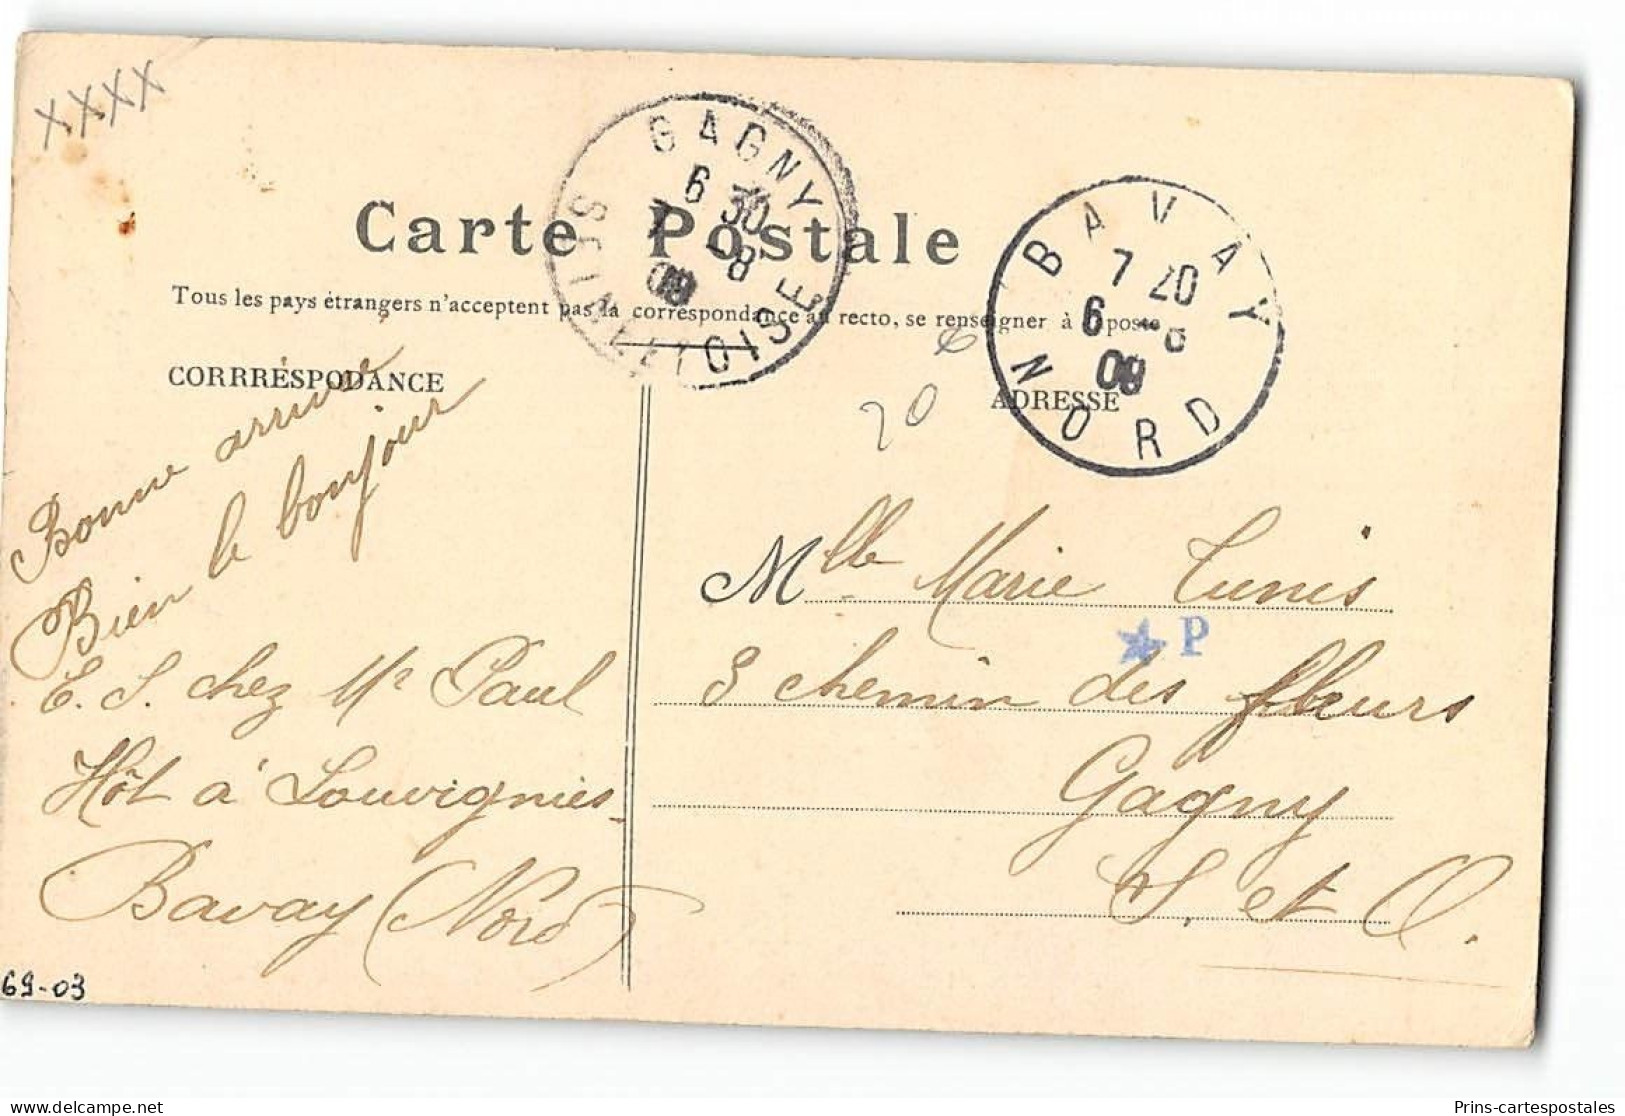 XXXX
GAGNY
6 30
7 -8
09
SEINE-ET-OISE
BAVAY
7 20
6 -8
09
NORD
Carte Postale
Tous les pays étrangers n'acceptent pas la correspondance au recto, se renseigner à la poste
CORRRÉSPODANCE
ADRESSE
20
Bonne arrivée
Bien le bonjour
E. S. chez Mr Paul
Hôt à Louvignies-
Bavay (Nord)
Mlle Marie Tunis
P
3 chemin des fleurs
Gagny
S. et O.
69-03
Prins-cartespostales
delcampe.net